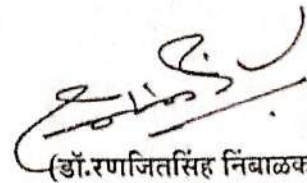 (डॉ.रणजितसिंह निंबाळक